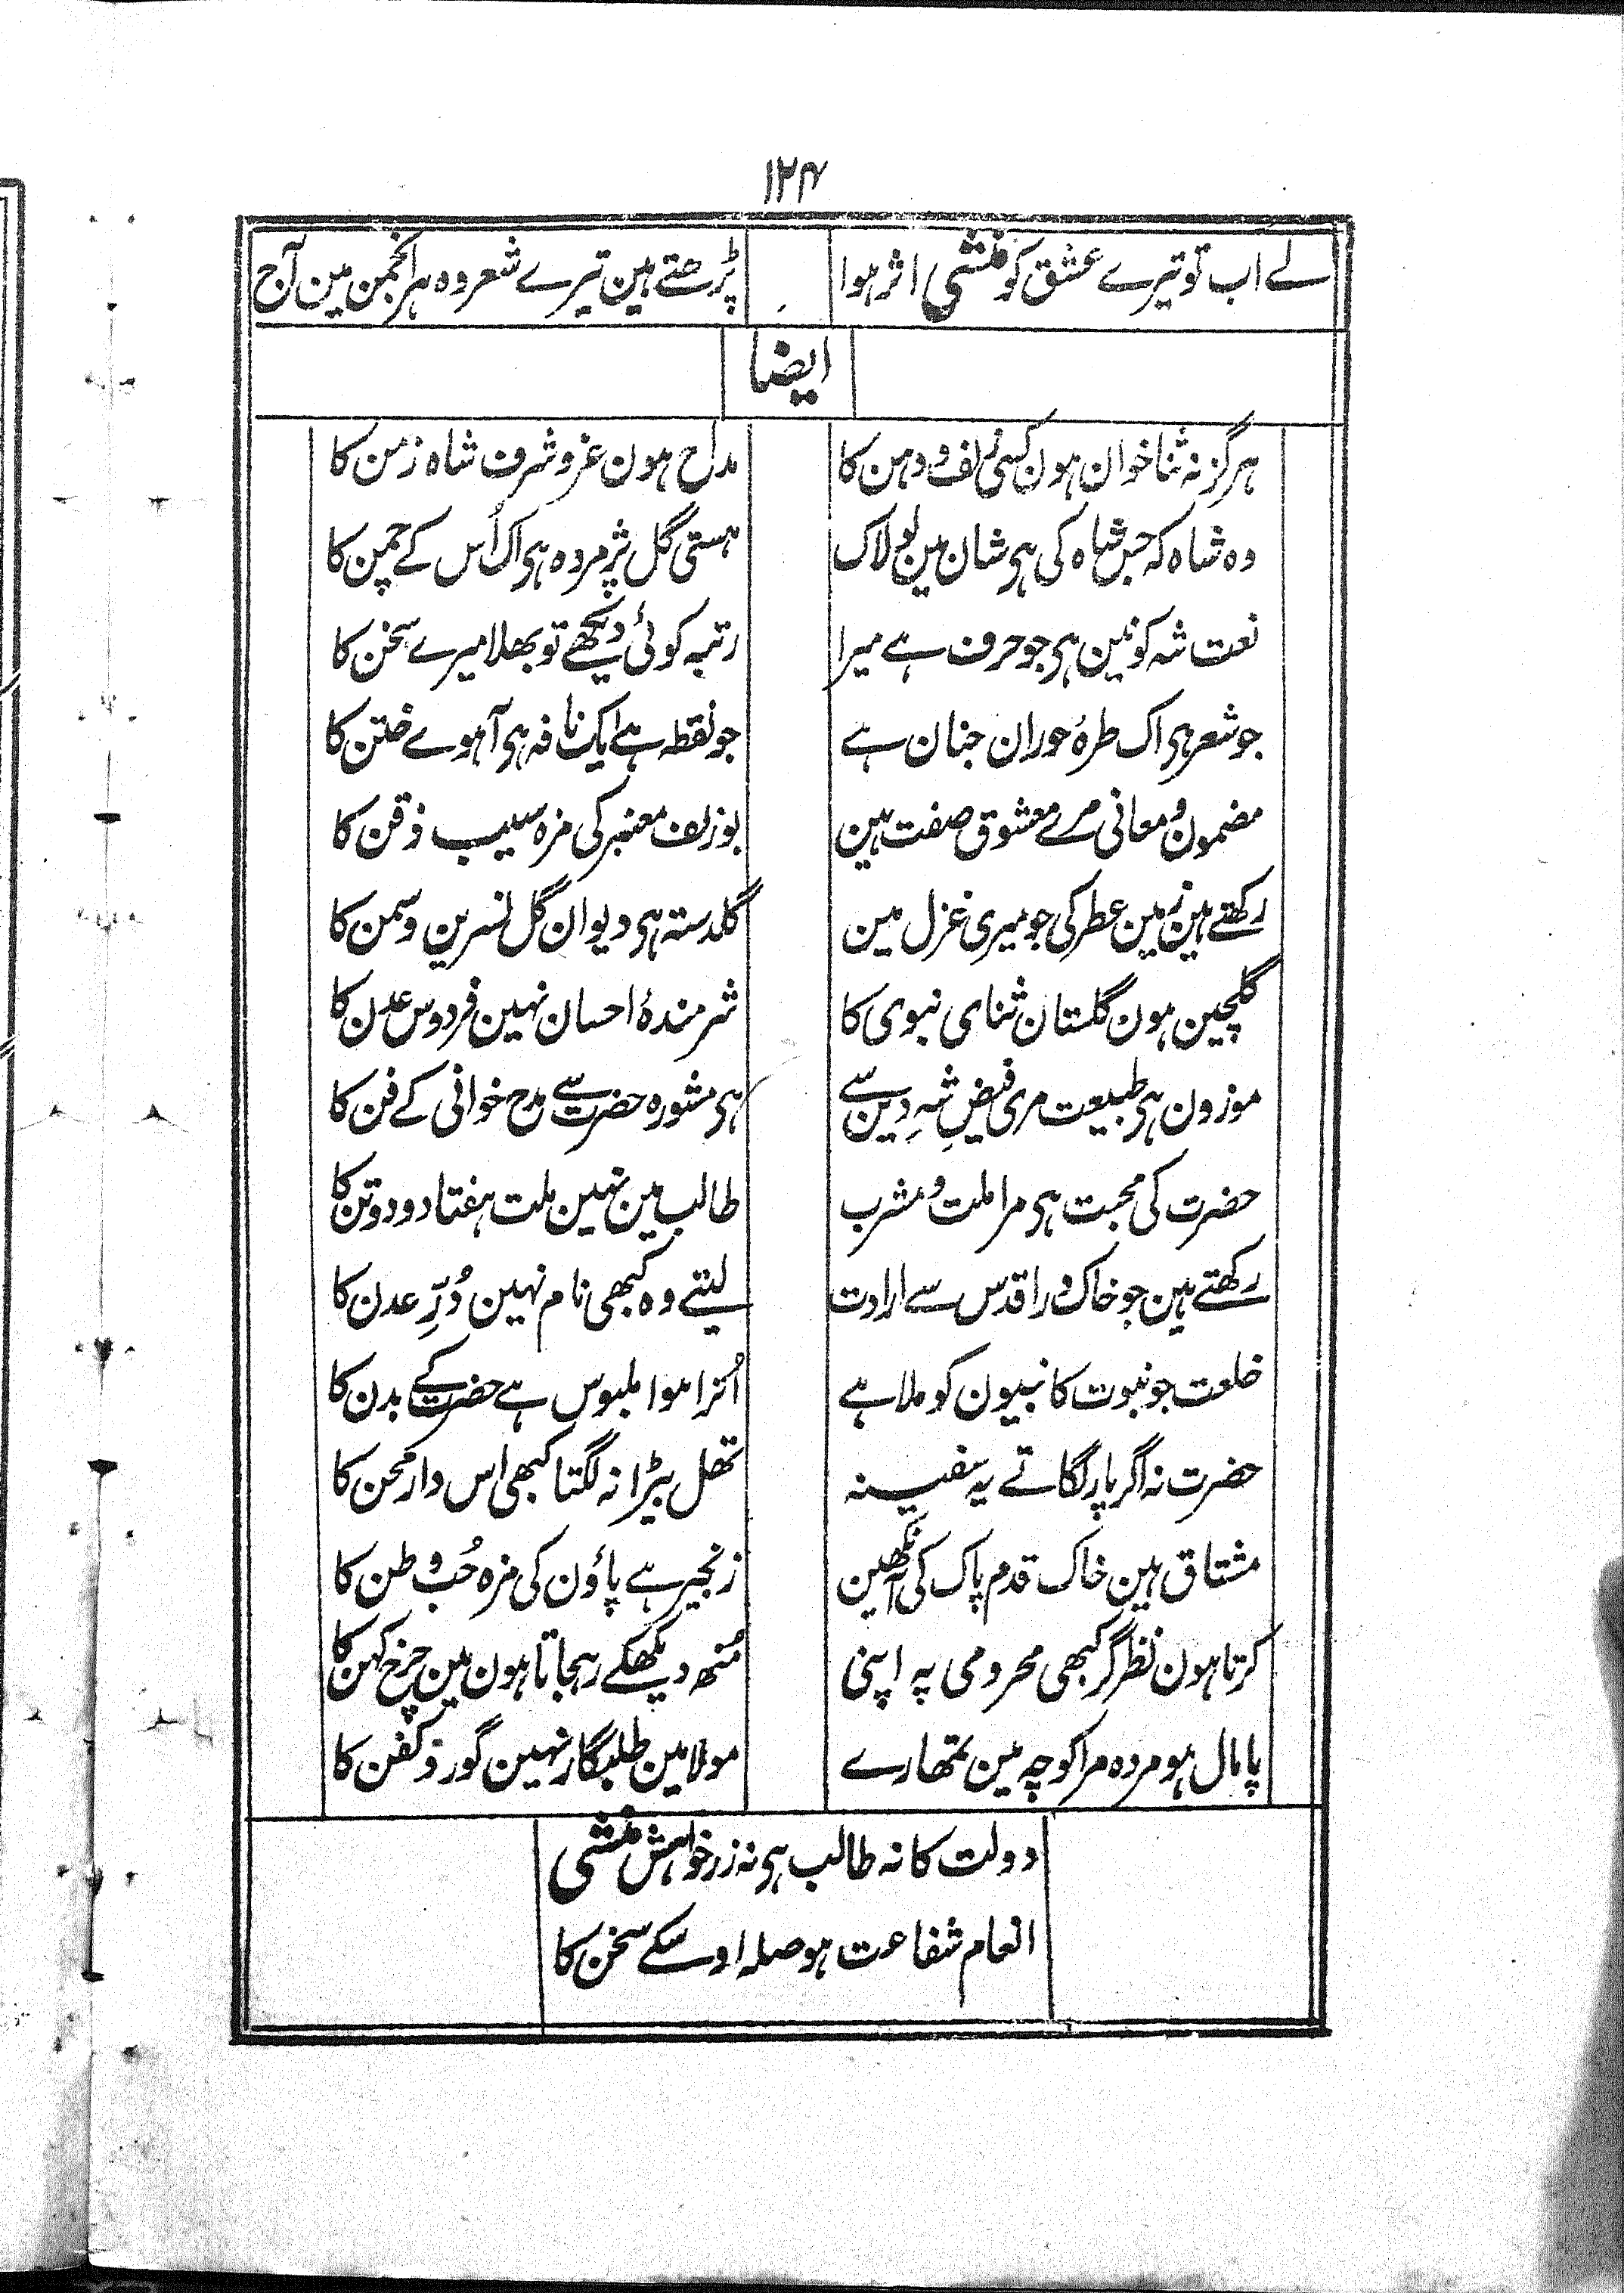 ۱۲۴
لے اب تو تیرے عشق کو منشی اثر ہوا پڑھتے ہین تیرے شعر وہ ہر انجمن مین آج
ایضا
ہرگز نہ ثنا خوان ہون کسی زلف و دہن کا مداح ہون عز و شرف شاہ زمن کا
وہ شاہ کہ جس شاہ کی ہی شان مین لولاک ہستی گل پژمردہ ہی اک اُس کے چمن کا
نعت شہ کونین ہی جو حرف ہے میرا رتبہ کوئی دیکھے تو بھلا میرے سخن کا
جو شعر ہی اک طرۂ حوران جنان ہے جو نقطہ ہے ایک نافہ ہی آہوے ختن کا
مضمون و معانی مرے معشوق صفت ہین بو زلف معنبر کی مزہ سیب ذقن کا
رکھتے ہین زمین عطر کی جو میری غزل مین گلدستہ ہی دیوان گل نسرین و سمن کا
گلچین ہون گلستان ثنای نبوی کا شرمندۂ احسان نہین فردوس عدن کا
موزون ہی طبیعت مری فیضِ شہِ دین سے ہی مشورہ حضرت سے مدح خوانی کے فن کا
حضرت کی محبت ہی مرا ملت و مشرب طالب مین نہین ملت ہفتاد و دو تن کا
رکھتے ہین جو خاک در اقدس سے ارادت لیتے وہ کبھی نام نہین دُرِّ عدن کا
خلعت جو نبوت کا نبیون کو ملا ہے اُترا ہوا ملبوس ہے حضرت کے بدن کا
حضرت نہ اگر پار لگاتے یہ سفینہ تھل بیڑا نہ لگتا کبھی اس دار محن کا
مشتاق ہین خاک قدم پاک کی آنکھین زنجیر ہے پاؤن کی مزہ حُب وطن کا
کرتا ہون نظر گر کبھی محرومی پہ اپنی مُنھ دیکھکے رہجاتا ہون مین چرخ کہن کا
پامال ہو مردہ مرا کوچہ مین تمھارے مولا مین طلبگار نہین گور و کفن کا
دولت کا نہ طالب ہی نہ زر خواہش منشی
انعام شفاعت ہو صلہ اوسکے سخن کا